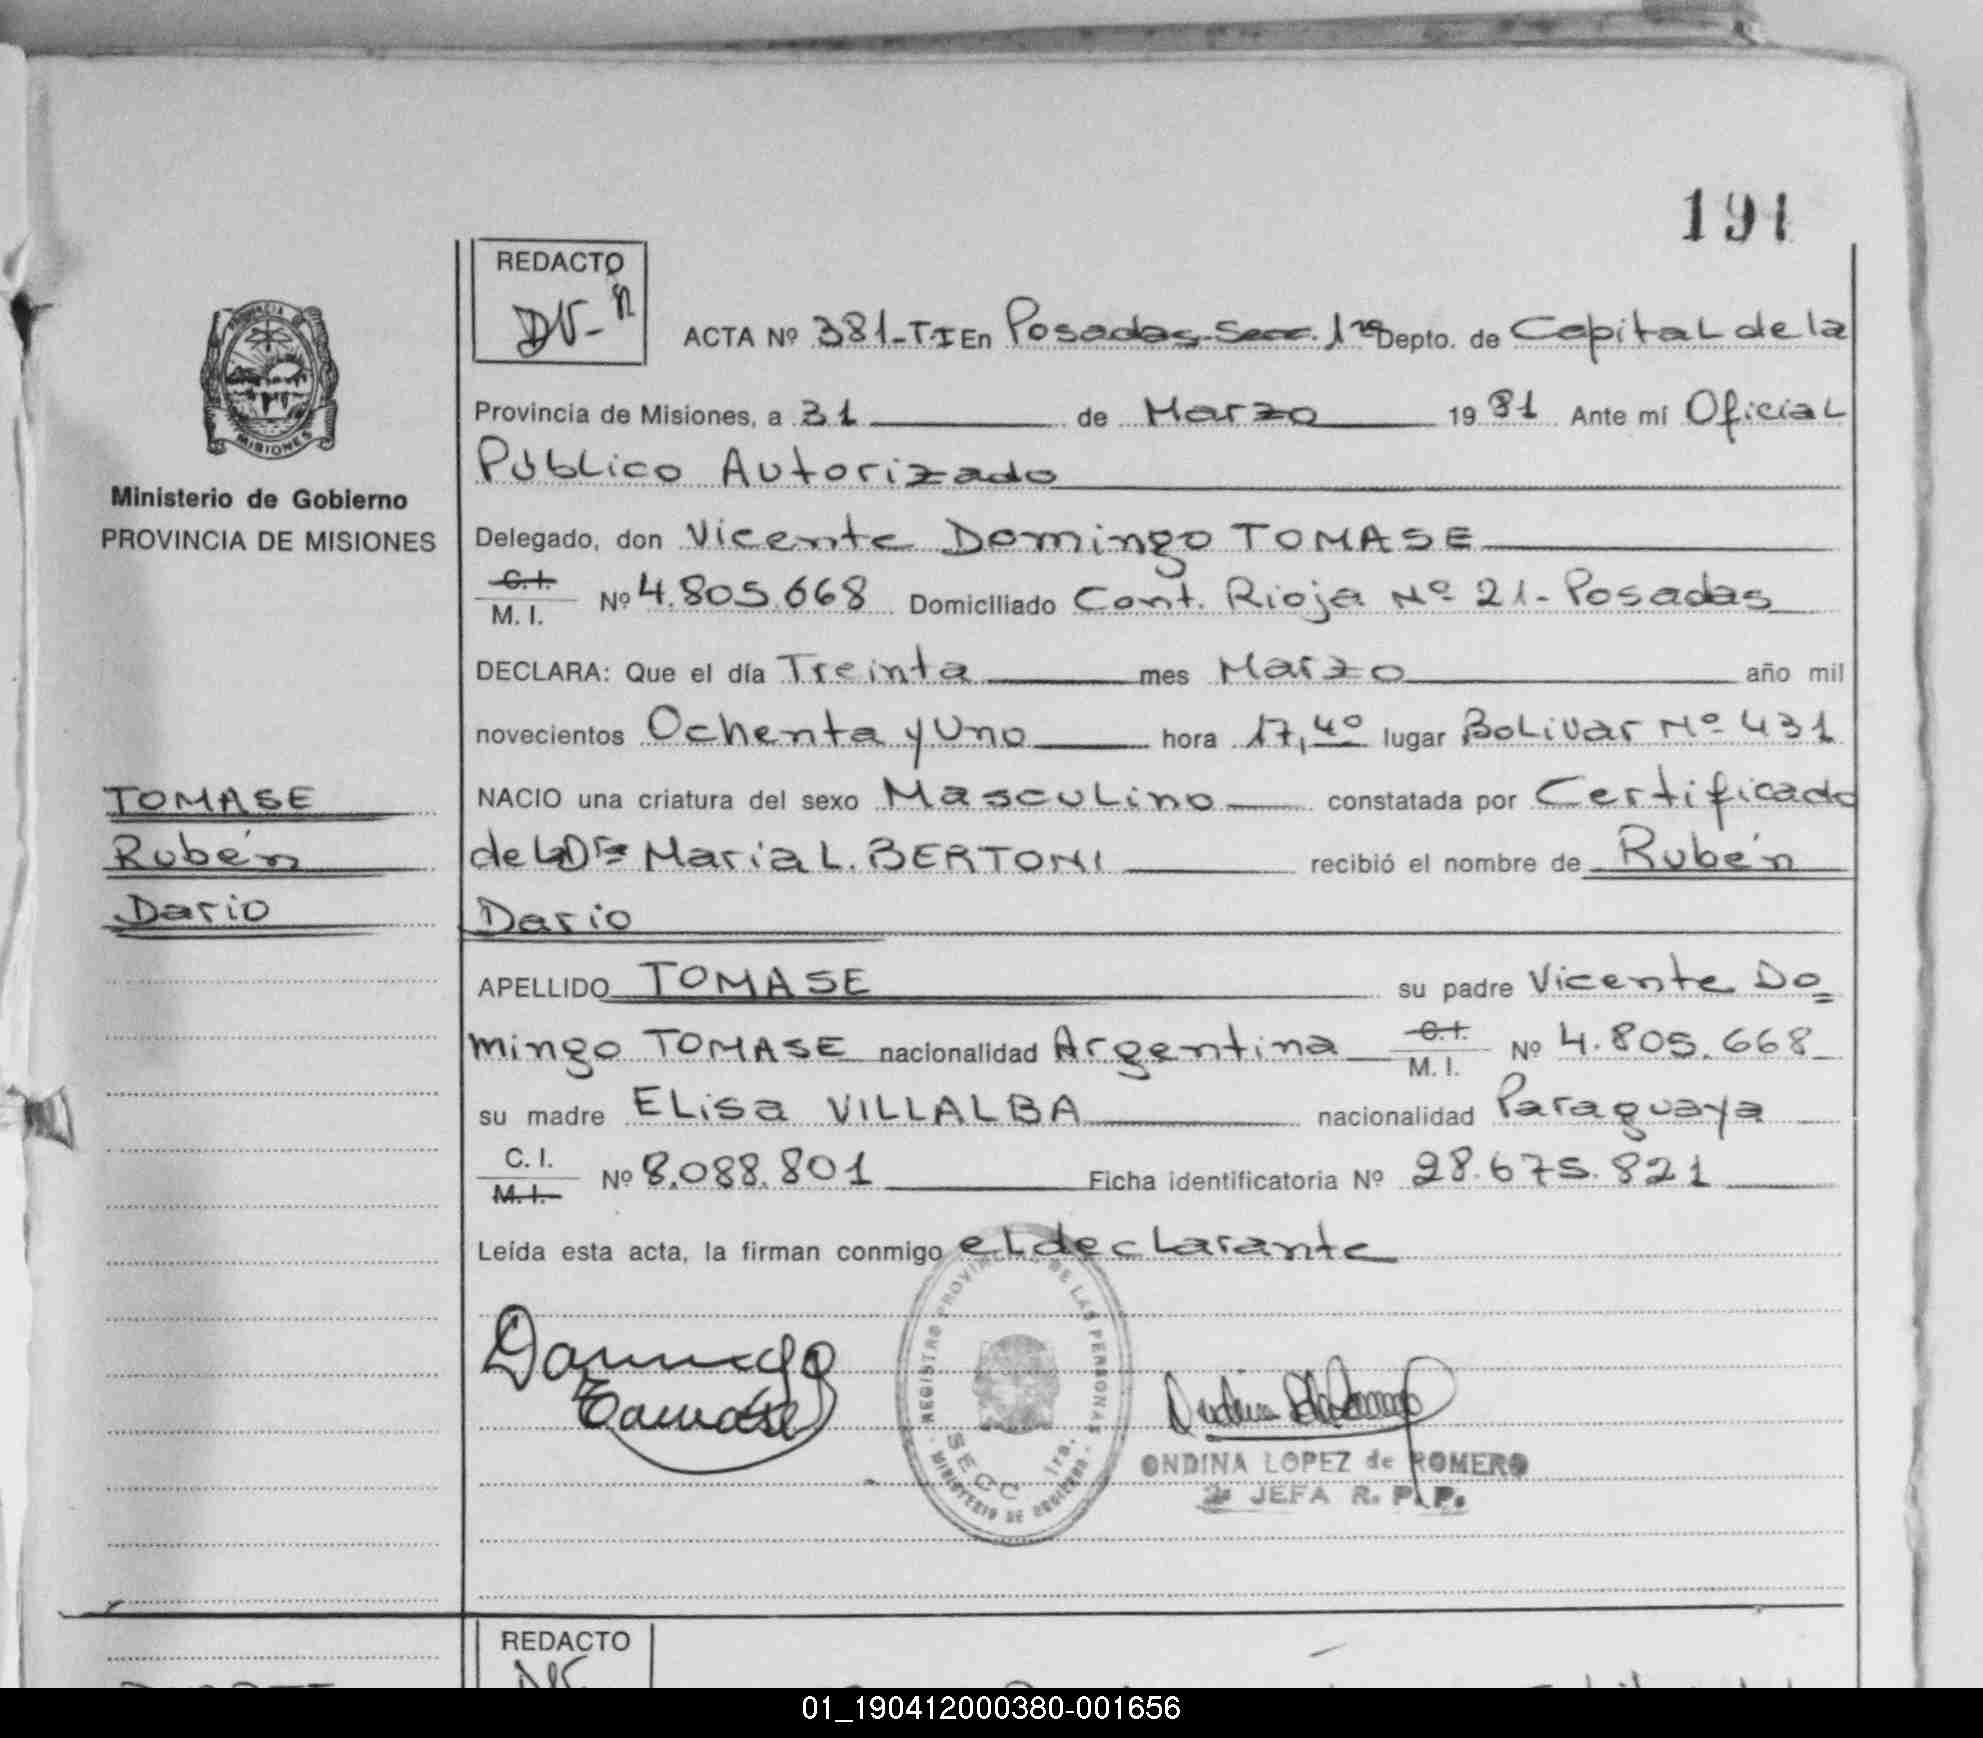 191
REDACTO
DV-n
ACTA Nº 381-T.I En Posadas-Secc. 1ra Depto. de Capital de la
Provincia de Misiones, a 31 de Marzo 1981 Ante mí Oficial
Público Autorizado
PROVINCIA DE
MISIONES
Ministerio de Gobierno
PROVINCIA DE MISIONES
Delegado, don Vicente Domingo TOMASE
C. I.
M. I. Nº 4.805.668 Domiciliado Cont. Rioja Nº 21-Posadas
DECLARA: Que el día Treinta mes Marzo año mil
novecientos Ochenta y Uno hora 17,40 lugar Bolivar Nº 431
TOMASE
Rubén
Dario
NACIO una criatura del sexo Masculino constatada por Certificado
de la Dra Maria L. BERTONI recibió el nombre de Rubén
Dario
APELLIDO TOMASE su padre Vicente Do=
mingo TOMASE nacionalidad Argentina C. I. M. I. Nº 4.805.668
su madre Elisa VILLALBA nacionalidad Paraguaya
C. I.
M. I. Nº 8.088.801 Ficha identificatoria Nº 28.675.821
Leída esta acta, la firman conmigo el declarante
Domingo
Tomase
REGISTRO PROVINCIAL DE LAS PERSONAS
SECC 1ra.
MINISTERIO DE GOBIERNO
ONDINA LOPEZ de ROMERO
JEFA R. P. P.
REDACTO
01_190412000380-001656